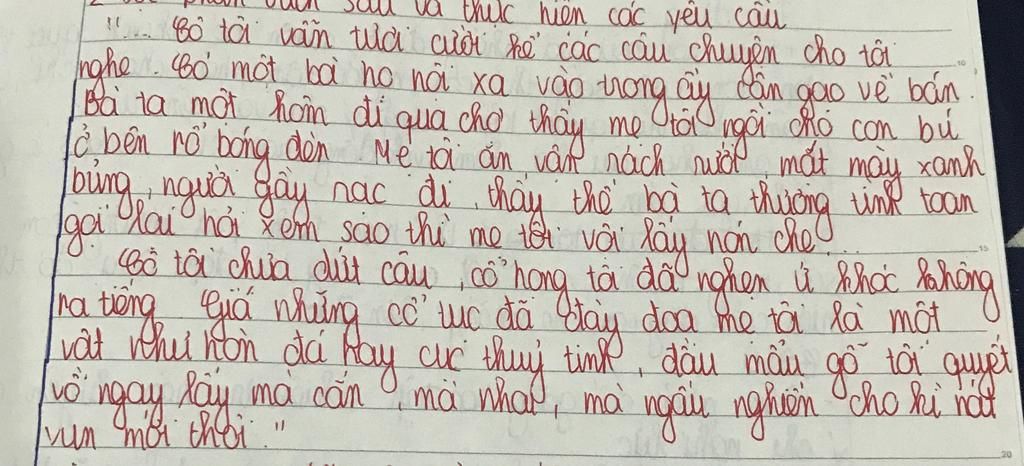 đoạn trích sau và thực hiện các yêu cầu
"... Cô tôi vẫn tươi cười kể các câu chuyện cho tôi
nghe. Có một bà họ nội xa vào trong ấy cân gạo về bán.
Bà ta một hôm đi qua chợ thấy mẹ tôi ngồi cho con bú
ở bên rổ bóng đèn. Mẹ tôi ăn vận rách rưới, mặt mày xanh
bủng, người gầy rạc đi, thấy thế bà ta thương tình toan
gọi lại hỏi xem sao thì mẹ tôi vội lấy nón che...
Cô tôi chưa dứt câu, cổ họng tôi đã nghẹn ứ khóc không
ra tiếng. Giá những cổ tục đã đày đọa mẹ tôi là một
vật như hòn đá hay cục thuỷ tinh, đầu mẩu gỗ tôi quyết
vồ ngay lấy mà cắn, mà nhai, mà ngấu nghiến cho kì nát
vụn mới thôi."
20